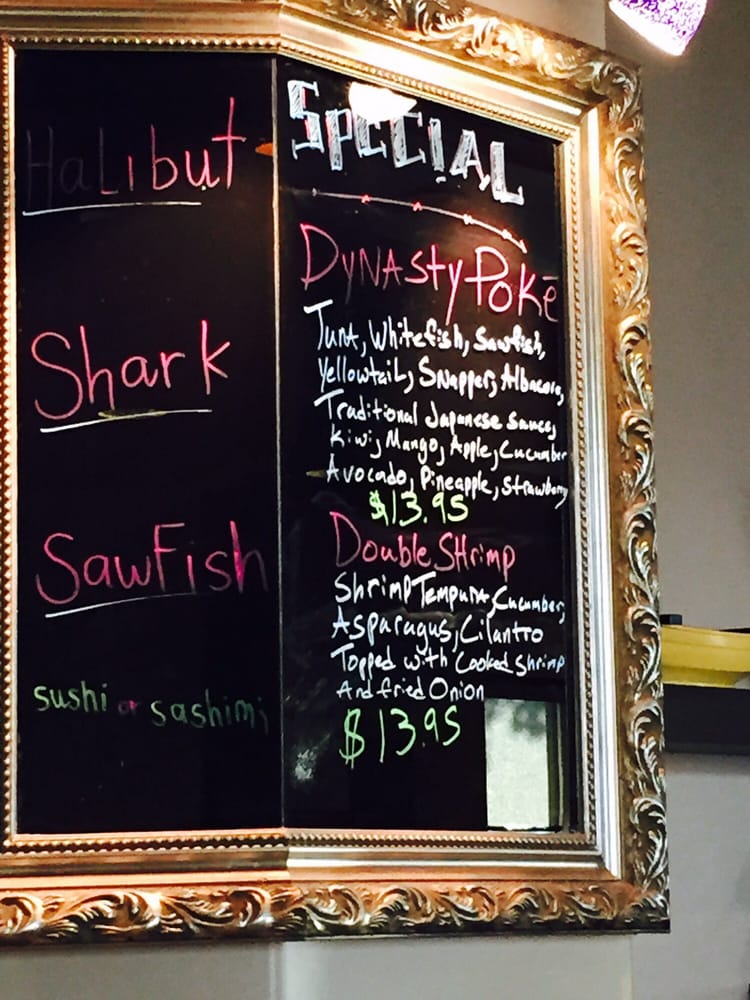 HaLibut
Shark
SawFish
sushi or sashimi
SPECIAL
DyNASty Pokē
Tuna, Whitefish, Sawfish,
Yellowtail, Snapper, Albacore,
Traditional Japanese Sauce,
Kiwi, Mango, Apple, Cucumber
Avocado, Pineapple, Strawberry
$13.95
Double SHrimp
Shrimp Tempura, Cucumber,
Asparagus, Cilantro
Topped with Cooked Shrimp
And fried Onion
$13.95